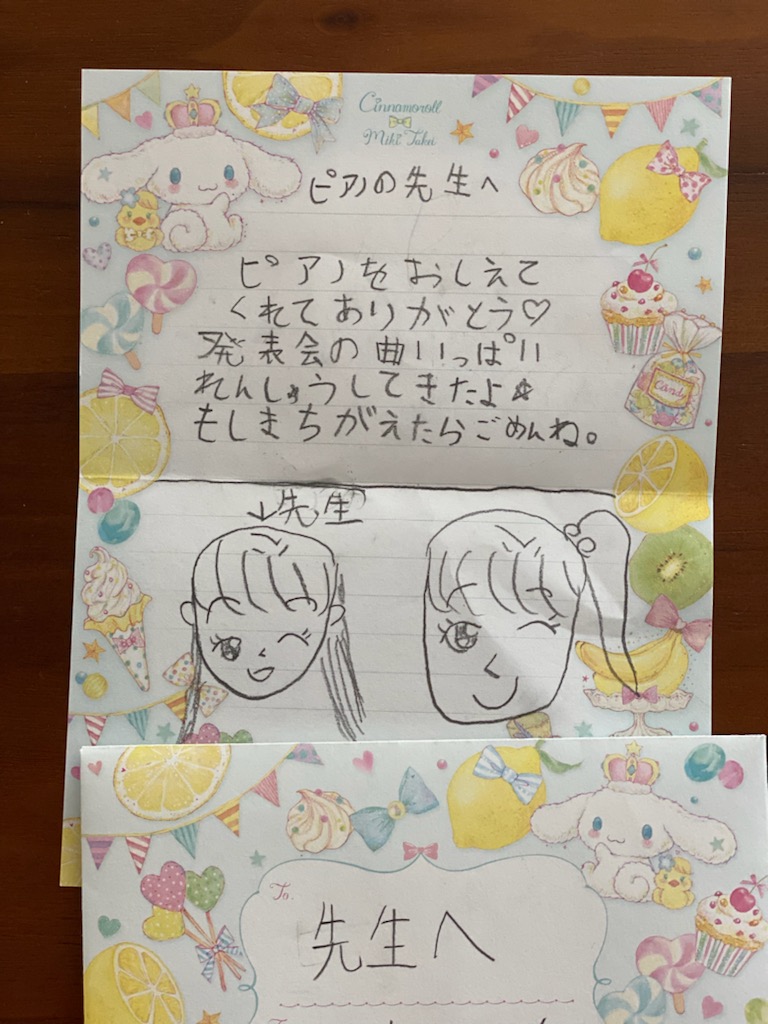 Cinnamoroll
Miki Takei
ピアノの先生へ
ピアノをおしえて
くれてありがとう♡
発表会の曲いっぱい
れんしゅうしてきたよ☆
もしまちがえたらごめんね。
Candy
↓先生
To.
先生へ